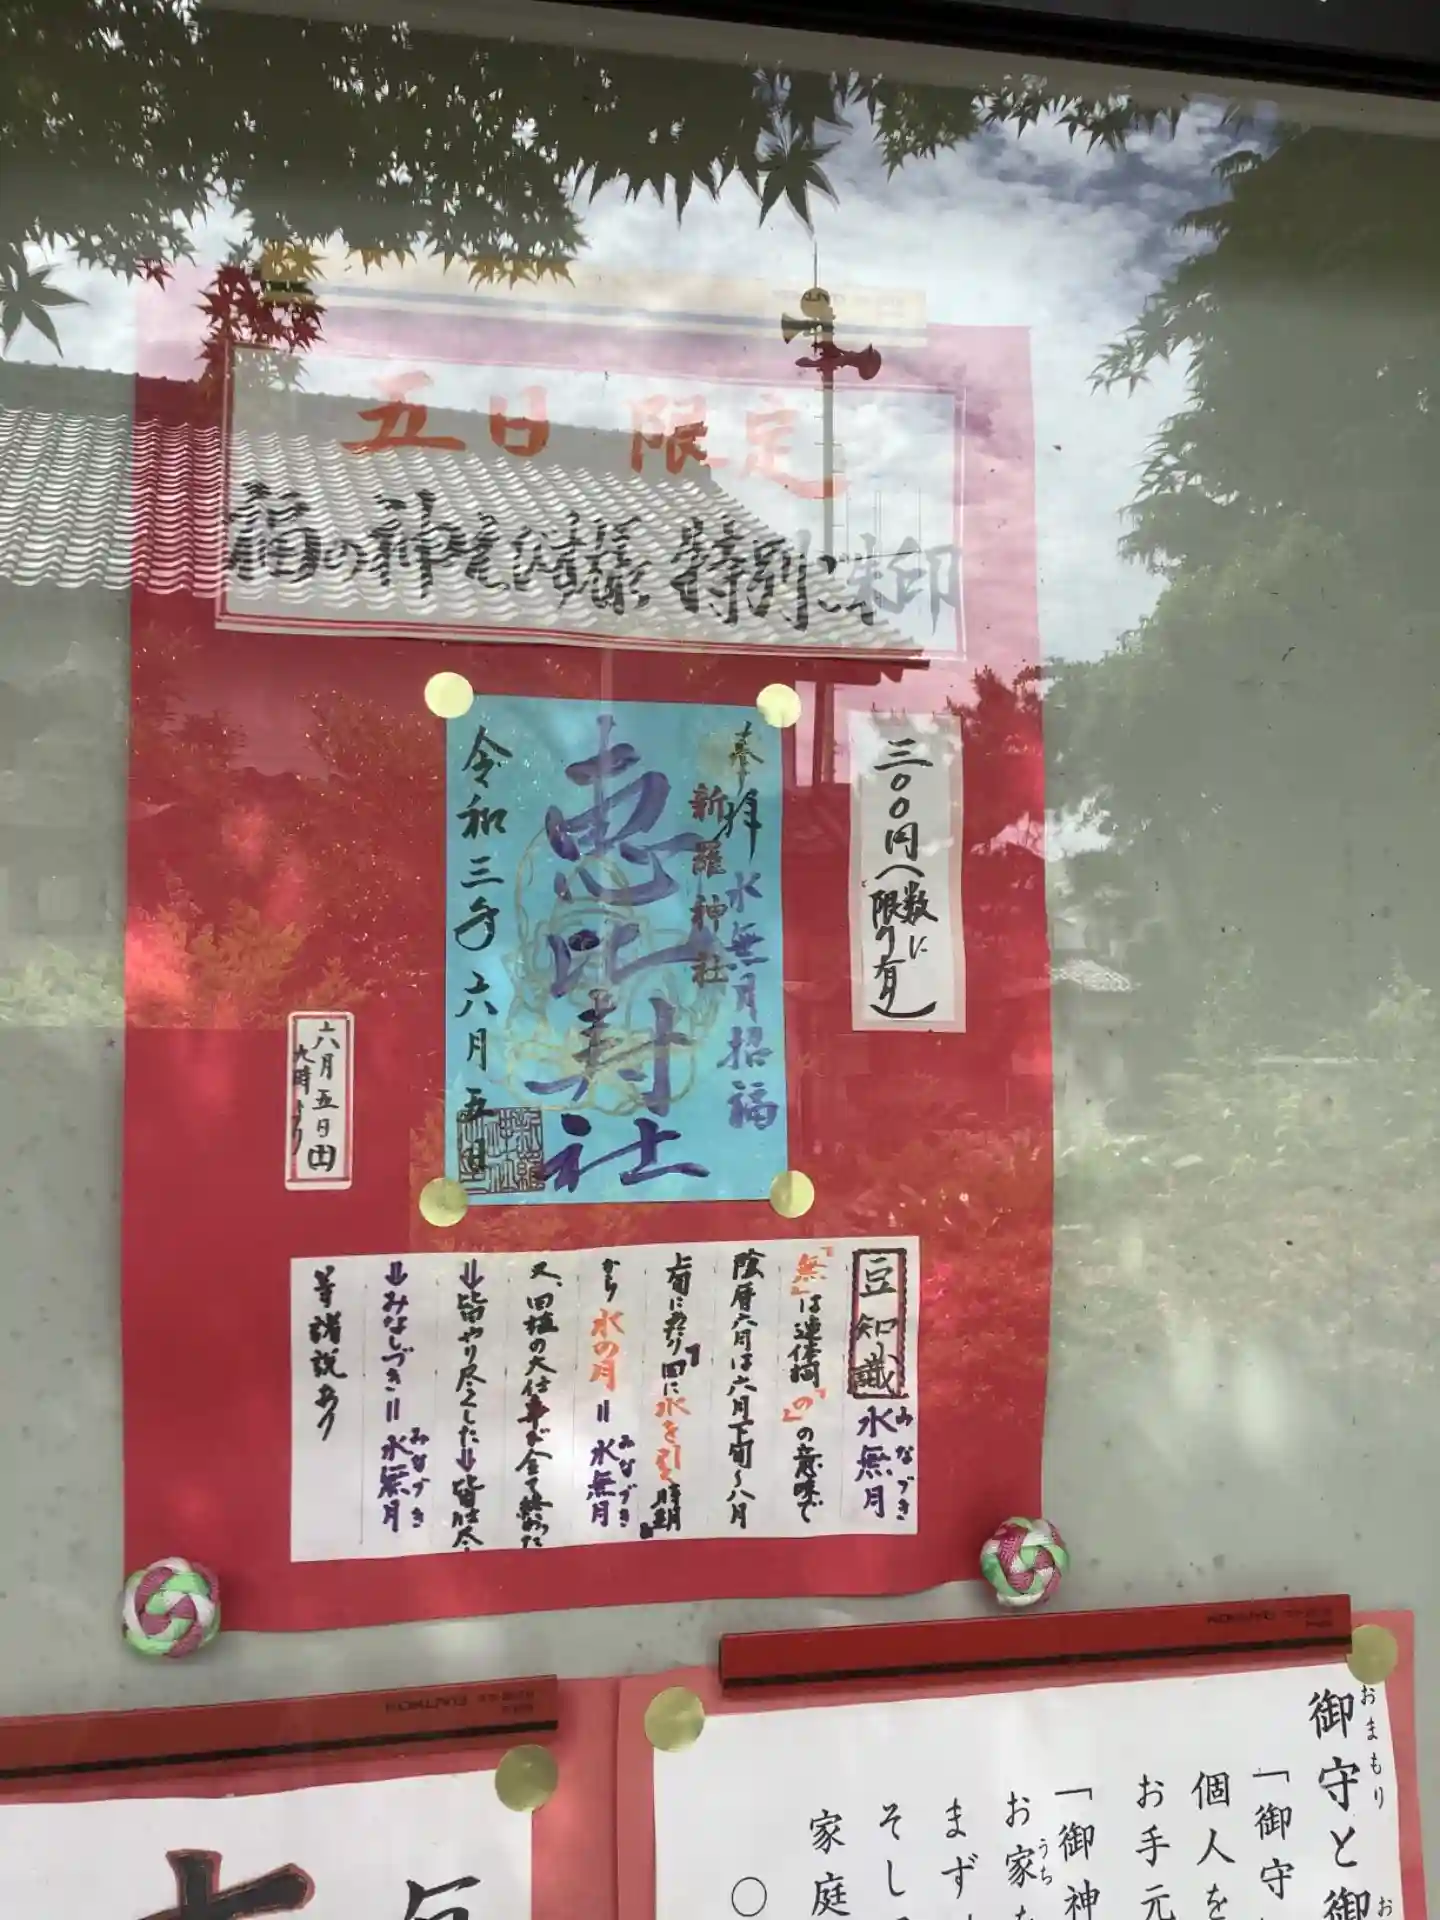 五日 限定
福の神えびす様 特別御朱印
三〇〇円(数に
限り有)
奉拝
水無月招福
新羅神社
恵比寿社
令和三年六月五日
六月五日田
九時より
豆知識 水無月
みなづき
「無」は連体詞「の」の意味で
陰暦六月は六月下旬〜八月
上旬に当り「田に水を引く時期」
から 水の月＝水無月
みなづき
又、田植の大仕事が全て終わった
⇒皆やり尽くした⇒皆仕尽
⇒みなしづき＝水無月
みなづき
等諸説あり
御守と御
おまもり
お
「御守
個人を
お手元
「御神
お家
うち
まず
そし
家庭
○